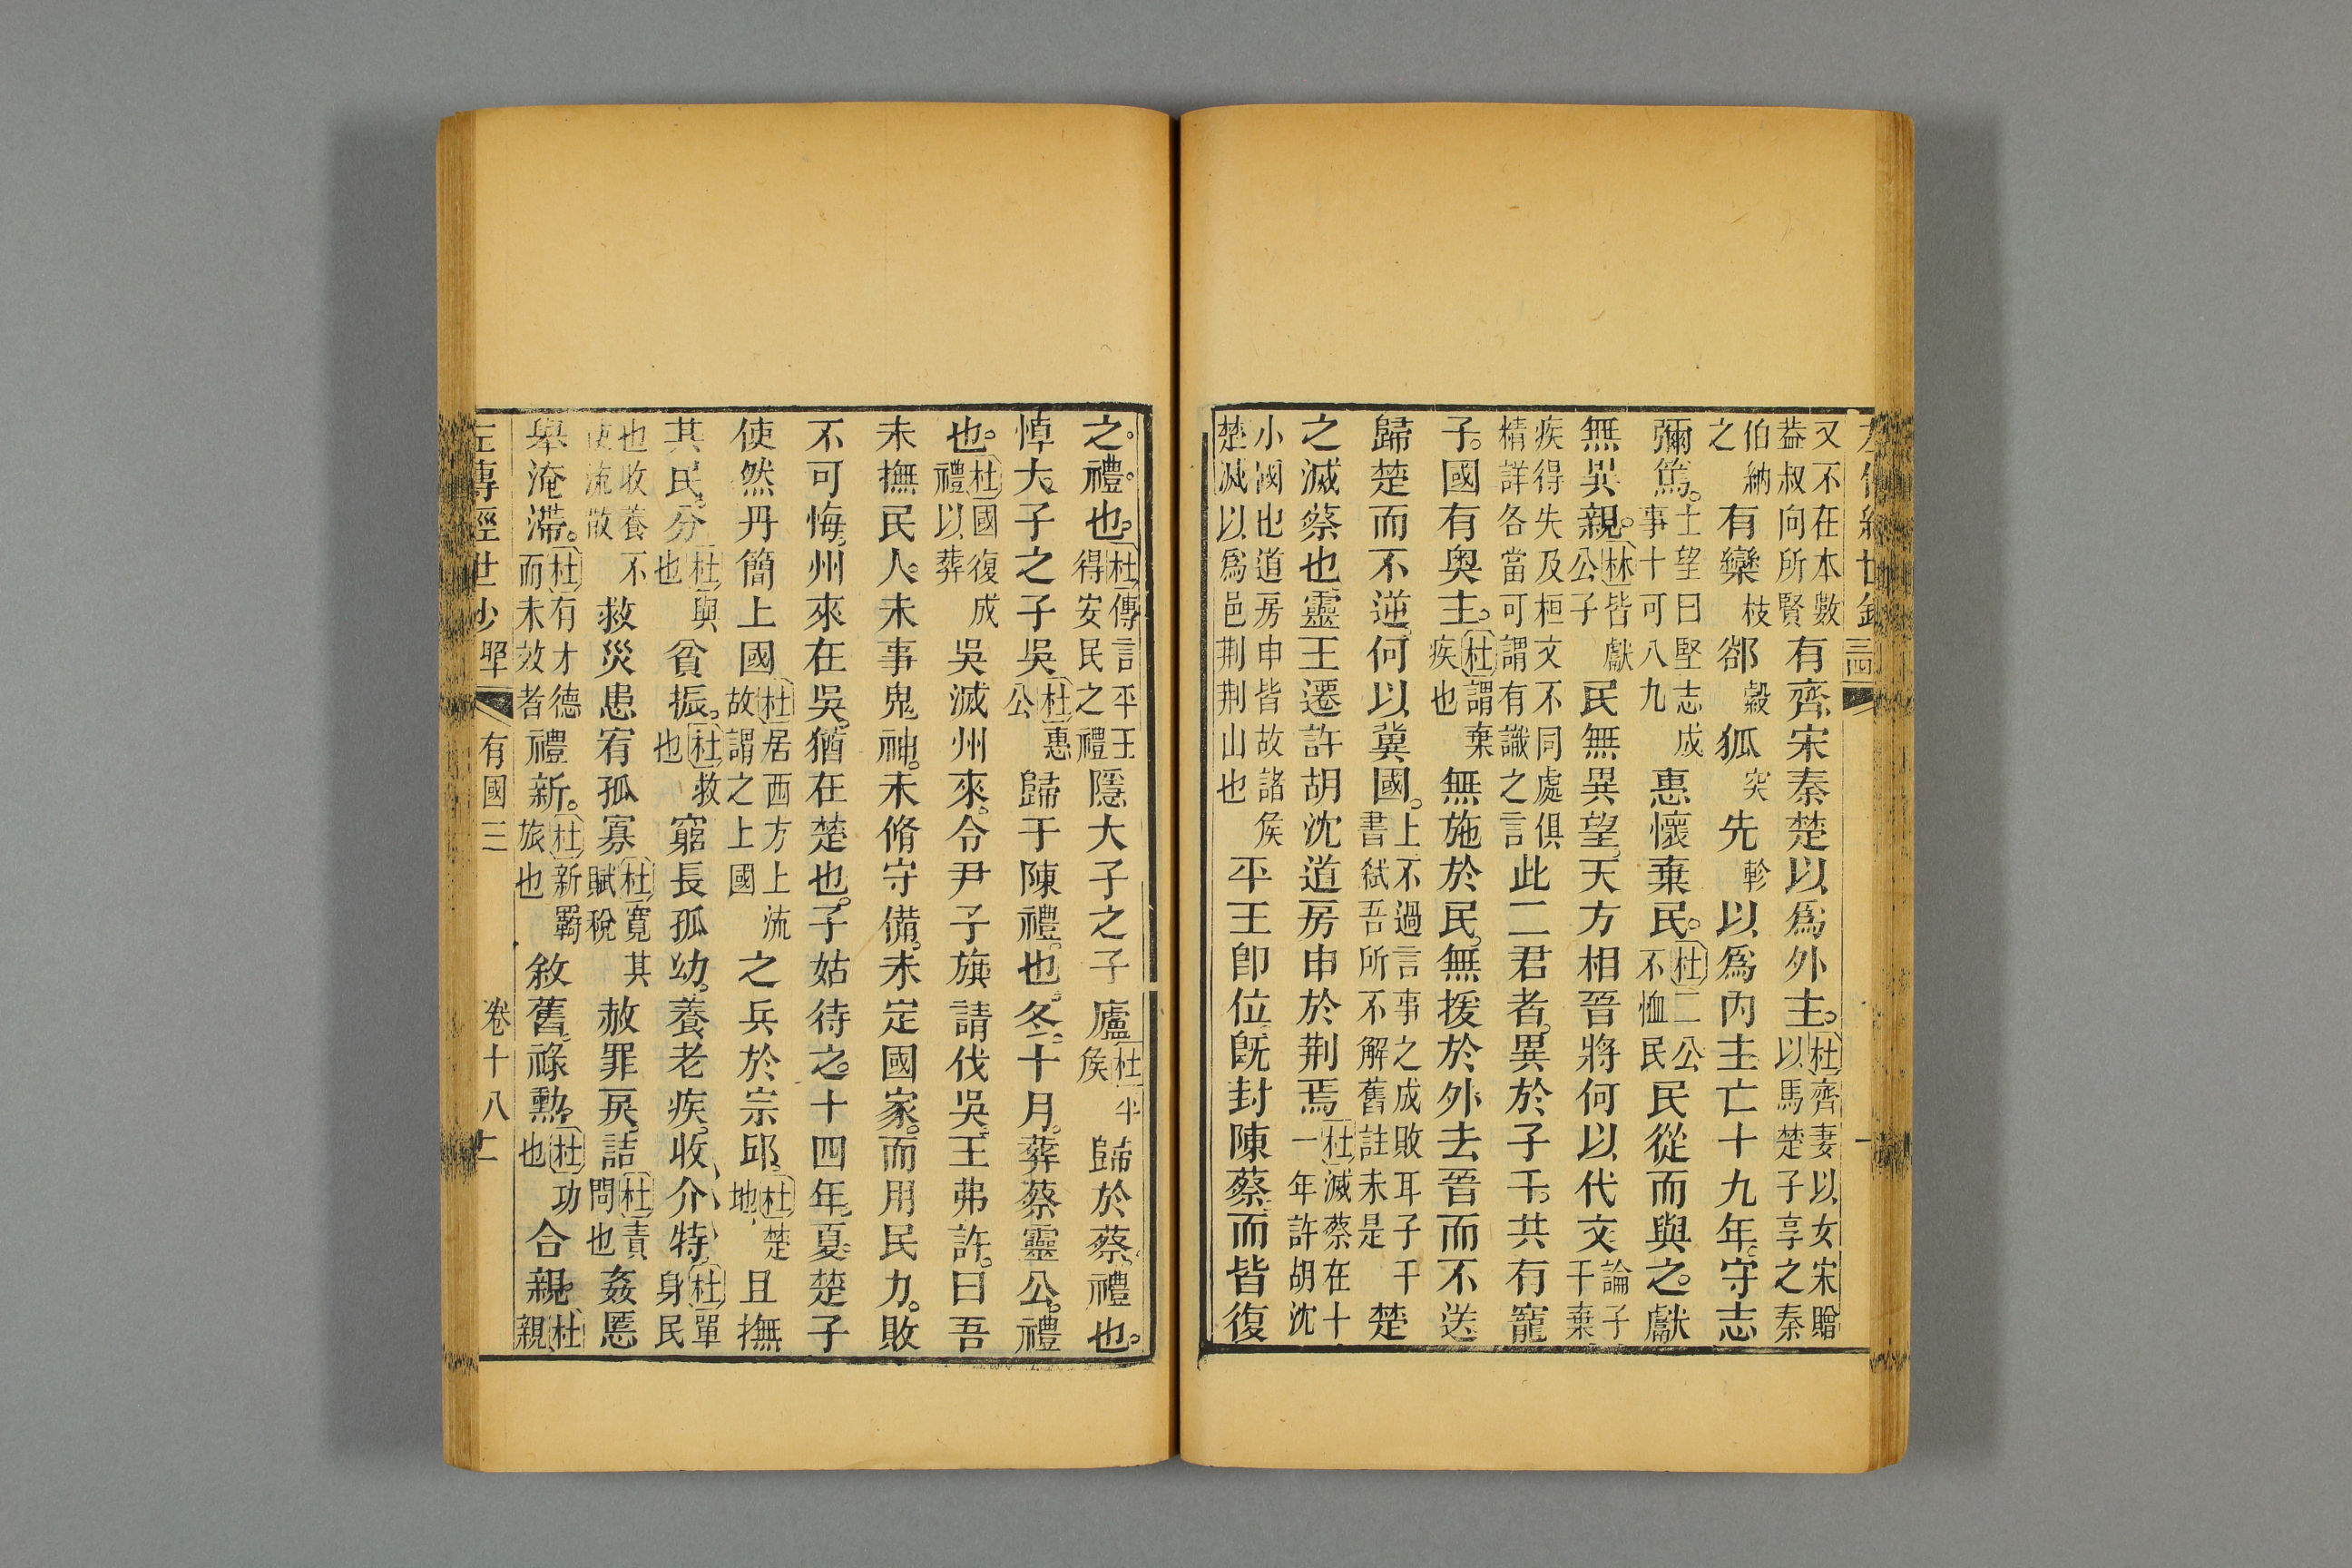 又不在本數葢叔向所賢有齊宋秦楚以爲外主。杜齊妻以女宋贈以馬楚子享之秦
伯納之有欒枝郤縠狐突先軫以爲內主亡十九年。守志
彌篤。士望曰堅志成事十可八九惠懷棄民。杜二公不恤民民從而與之。獻
無異親。林皆獻公子民無異望。天方相晉將何以代文論子干棄
疾得失及桓文不同處俱精詳各當可謂有識之言此二君者。異於子干。共有寵
子。國有奧主。杜謂棄疾也無施於民。無援於外去晉而不送
歸楚而不逆。何以冀國。上不過言事之成敗耳子干書弑吾所不解舊註未是楚
之滅蔡也靈王遷許胡沈道房申於荆焉杜滅蔡在十一年許胡沈
小國也道房申皆故諸矦楚滅以爲邑荆荆山也平王卽位旣封陳蔡而皆復
之。禮也。杜傳言平王得安民之禮隱大子之子廬杜平矦歸於蔡。禮也。
悼大子之子吳杜惠公歸于陳禮也。冬。十月。葬蔡靈公。禮
也。杜國復成禮以葬吳滅州來。令尹子旗請伐吳。王弗許。曰吾
未撫民人。未事鬼神。未脩守備。未定國家。而用民力。敗
不可悔。州來在吳。猶在楚也。子姑待之。十四年。夏楚子
使然丹簡上國杜居西方上流故謂之上國之兵於宗邱杜楚地且撫
其民。分杜與也貧振。杜救也窮長孤幼。養老疾。收介特。杜單身民
也收養不使流散救災患宥孤寡杜寬其賦稅赦罪戾。詰杜責問也姦慝
舉淹滯。杜有才德而未效者禮新。杜新羇旅也敘舊。祿勳。杜功也合親。杜親
左傳經世鈔 昭 有國三 卷十八 二